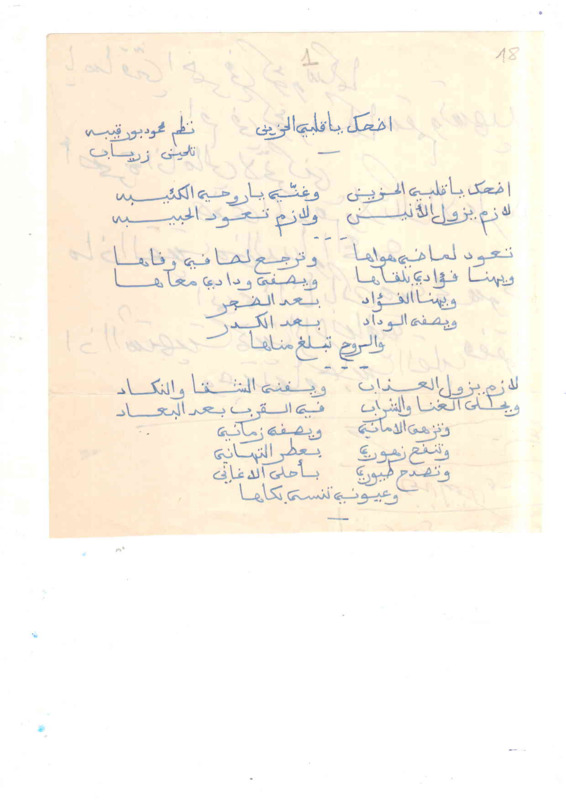 18
1
اضحك يا قلبي الحزين
نظم محمود بورقيبه
تلحين زرياب
اضحك يا قلبي الحزين وغنّي يا روحي الكئيبه
لازم يزول الأنين ولازم تعود الحبيبه
تعود لماضي هواها وترجع لصافي وفاها
ويهنا فؤادي بلقاها ويصفى ودادي معاها
ويهنا الفؤاد بعد الضجر
ويصفى الوداد بعد الكدر
والروح تبلغ مناها
لازم يزول العذاب ويفنى الشقا والنكاد
ويحلى الغنا والشراب في القرب بعد البعاد
وتزهى الاماني ويصفى زماني
وتنفح زهوري بعطر التهاني
وتصدح طيوري بأحلى الاغاني
وعيوني تنسى بكاها